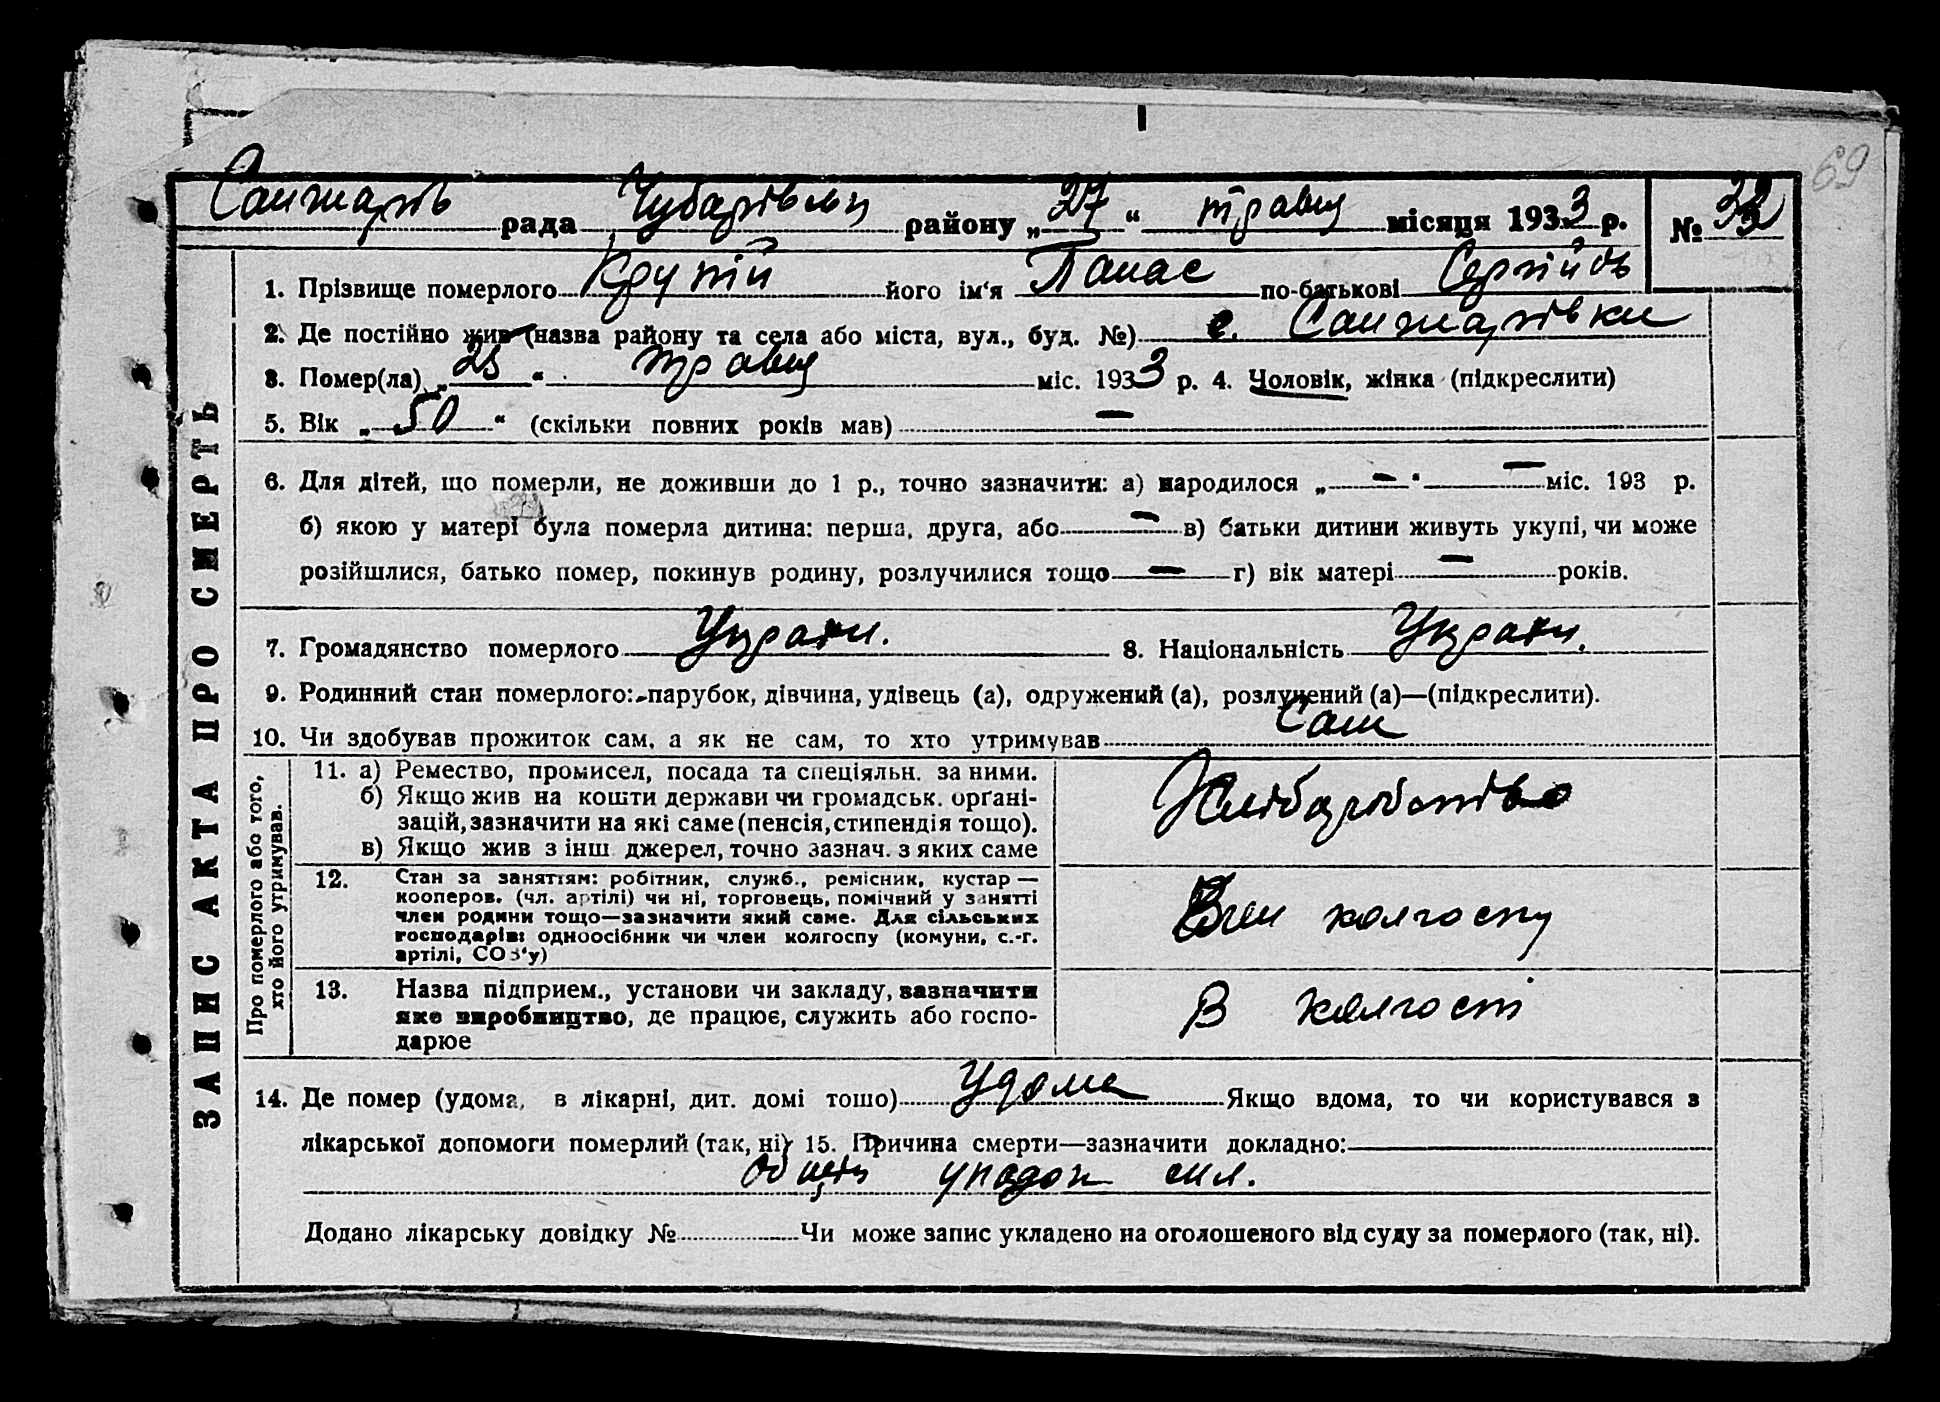 69
Санжарів рада Чубарівськ району „27“ травня місяця 1933 р. № 32
1. Прізвище померлого Крупій його ім‘я Панас по-батькові Сергійов
2. Де постійно жив (назва району та села або міста, вул., буд. №) с. Санжарівки
3. Помер(ла) „25“ травня міс. 1933 р. 4. Чоловік, жінка (підкреслити)
5. Вік „50“ (скільки повних років мав) —
6. Для дітей, що померли, не доживши до 1 р., точно зазначити: а) народилося „—“ — міс. 193 р.
б) якою у матері була померла дитина: перша, друга, або — в) батьки дитини живуть укупі, чи може
розійшлися, батько помер, покинув родину, розлучилися тощо — г) вік матері — років.
7. Громадянство померлого Украін. 8. Національність Украін.
9. Родинний стан померлого: парубок, дівчина, удівець (а), одружений (а), розлучений (а)—(підкреслити).
10. Чи здобував прожиток сам, а як не сам, то хто утримував Сам
ЗАПИС АКТА ПРО СМЕРТЬ
Про померлого або того,
хто його утримував.
11. а) Ремество, промисел, посада та спеціяльн. за ними.
б) Якщо жив на кошти держави чи громадськ. орґані-
зацій, зазначити на які саме (пенсія, стипендія тощо).
в) Якщо жив з інш джерел, точно зазнач. з яких саме
Хліборобство
12. Стан за заняттям: робітник, служб., ремісник, кустар —
кооперов. (чл. артілі) чи ні, торговець, помічний у занятті
член родини тощо—зазначити який саме. Для сільських
господарів: одноосібник чи член колгоспу (комуни, с.-г.
артілі, СОЗ‘у)
колгоспу
13. Назва підприєм., установи чи закладу, зазначити
яке виробництво, де працює, служить або госпо-
дарює
В колгоспі
14. Де помер (удома, в лікарні, дит. домі тощо) Удома Якщо вдома, то чи користувався з
лікарської допомоги померлий (так, ні) 15. Причина смерти—зазначити докладно:
Общій упадок сил.
Додано лікарську довідку № Чи може запис укладено на оголошеного від суду за померлого (так, ні).